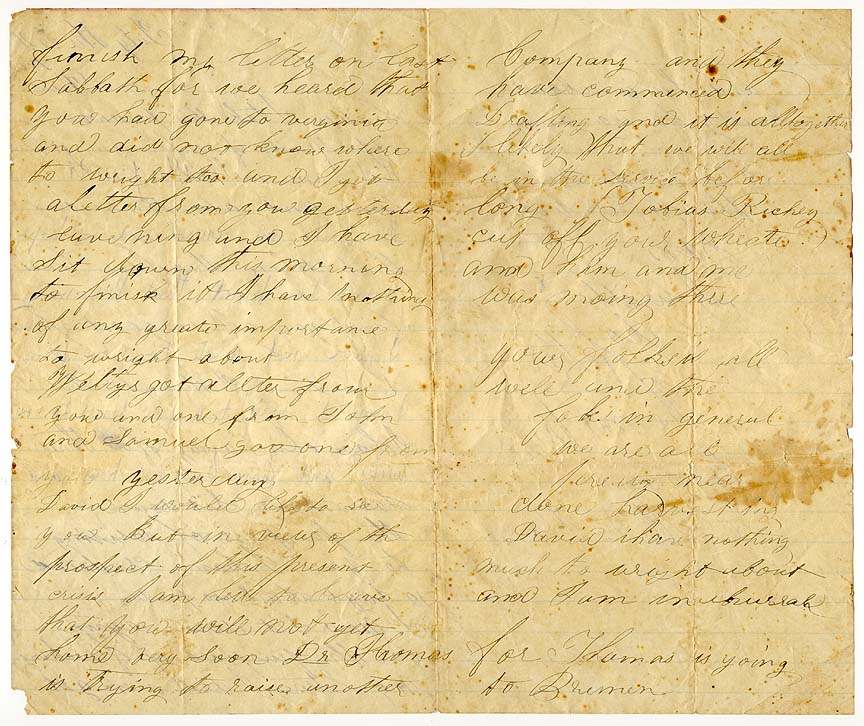 finish my letter on last
Sabbath for we heard that
you had gone to verginia
and did not know where
to wright too and I got
a letter from you yesterday
euvening and I have
sit down this morning
to finish it I have nothing
of any greate importance
to wright about
Weltys got a letter from
you and one from John
and Samuel got one from
yesterday
David I would like to see
you But in view of th
prospect of this present
crisis I am to
that you will not get
home very soon Dr Thomas
is trying to raise another
Company and they
have commenced
Drafting and it is altogether
likely that we will all
be in the service before
long Tobias Richey
cut off your wheate
and him and me
was moing there
your folks is all
well and the
folks in general
we are all
near
done harvesting
David i have nothing
much to wright about
and I am in
for Thomas is going
to Bremen